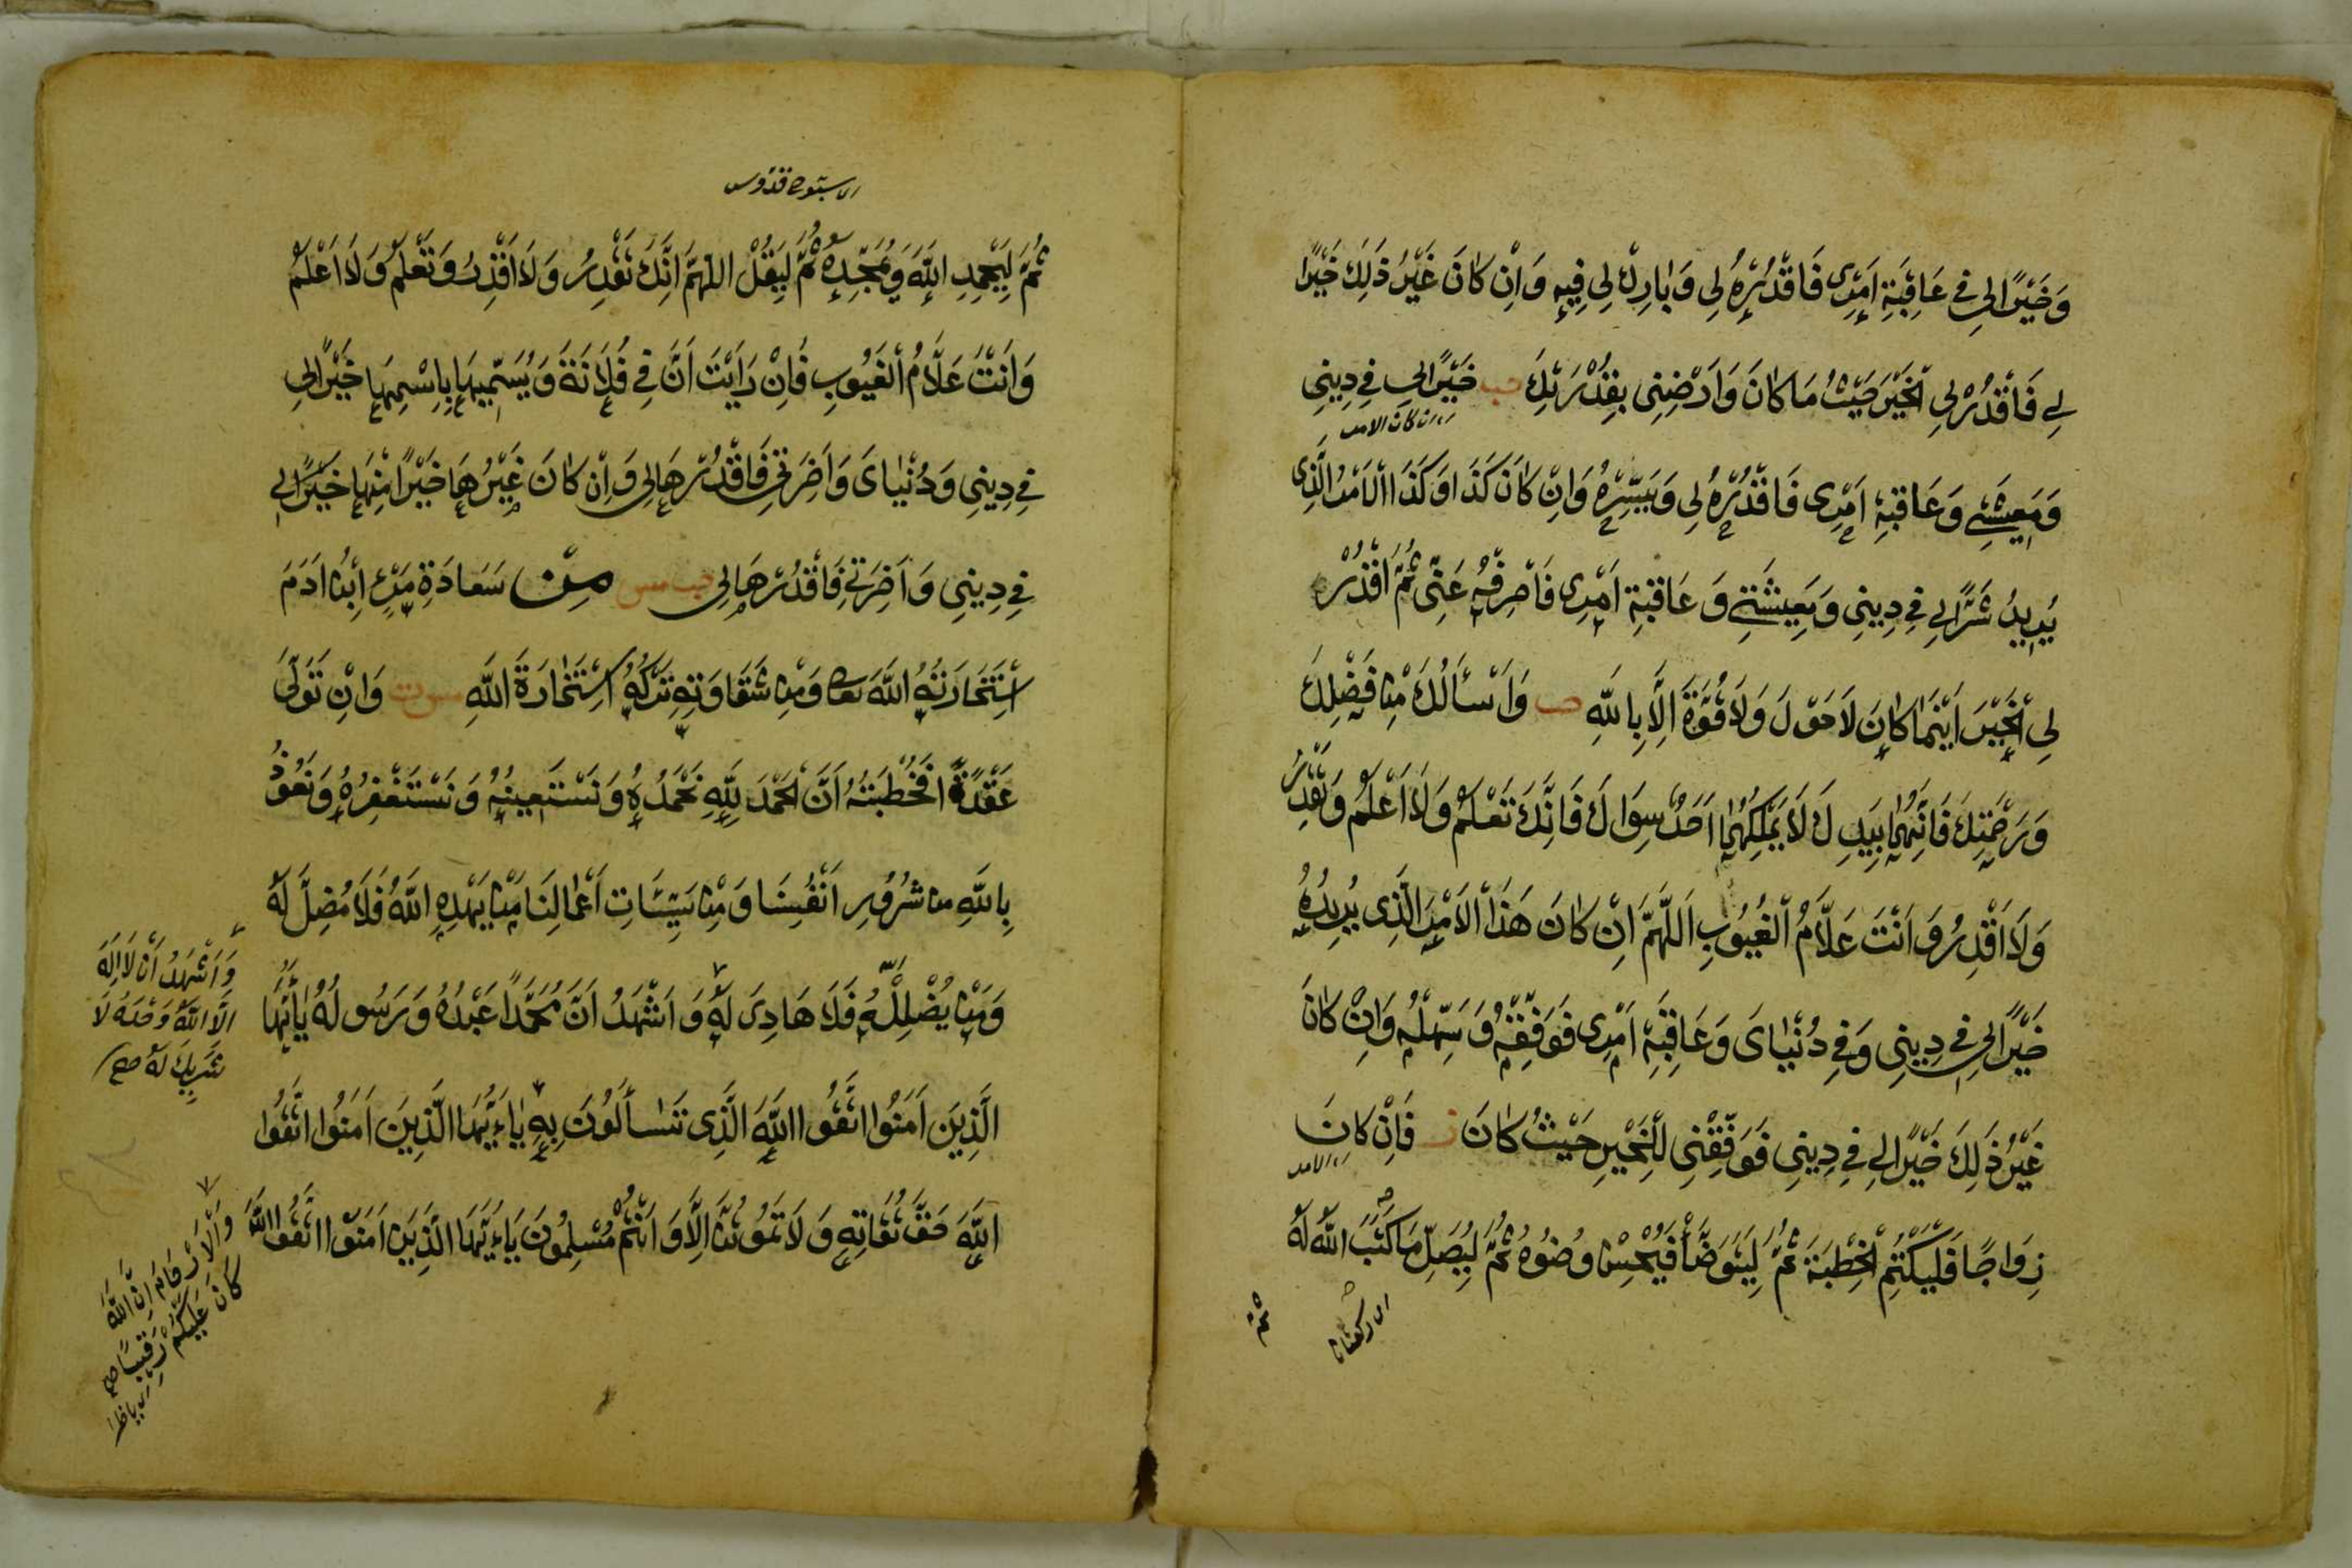 وَخَيْرًا لِي فِي عَاقِبَةِ اَمْرِي فَاقْدُرْهُ لِي وَبَارِكْ لِي فِيهِ وَاِنْ كَانَ غَيْرُ ذَلِكَ خَيْرًا
لِي فَاقْدُرْ لِي الْخَيْرَ حَيْثُ مَا كَانَ وَاَرْضِنِي بِقُدْرَتِكَ حب خَيْرًا لِي فِي دِينِي
ان كان الامر
وَمَعِيشَتِي وَعَاقِبَةِ اَمْرِي فَاقْدُرْهُ لِي وَيَسِّرْهُ وَاِنْ كَانَ كَذَا وَكَذَا الْاَمْرُ الَّذِي
يُرِيدُ شَرًّا لِي فِي دِينِي وَمَعِيشَتِي وَعَاقِبَةِ اَمْرِي فَاصْرِفْهُ عَنِّي ثُمَّ اقْدُرْ
لِي الْخَيْرَ اَيْنَمَا كَانَ لَا حَوْلَ وَلَا قُوَّةَ اِلَّا بِاللَّهِ حب وَاَسْاَلُكَ مِنْ فَضْلِكَ
وَرَحْمَتِكَ فَاِنَّهُمَا بِيَدِكَ لَا يَمْلِكُهُمَا اَحَدٌ سِوَاكَ فَاِنَّكَ تَعْلَمُ وَلَا اَعْلَمُ وَتَقْدِرُ
وَلَا اَقْدِرُ وَاَنْتَ عَلَّامُ الْغُيُوبِ اَللَّهُمَّ اِنْ كَانَ هَذَا الْاَمْرَ الَّذِي يُرِيدُهُ
خَيْرًا لِي فِي دِينِي وَفِي دُنْيَايَ وَعَاقِبَةِ اَمْرِي فَوَفِّقْهُ وَسَهِّلْهُ وَاِنْ كَانَ
غَيْرُ ذَلِكَ خَيْرًا لِي فِي دِينِي فَوَفِّقْنِي لِلْخَيْرِ حَيْثُ كَانَ ز فَاِنْ كَانَ
الامر
زِوَاجًا فَلْيَكْتُمِ الْخِطْبَةَ ثُمَّ لِيَتَوَضَّأْ فَيُحْسِنْ وُضُوءُهُ ثُمَّ لِيُصَلِّ مَا كَتَبَ اللهُ لَهُ
ثُمَّ
الاسبوح قدوس
ثُمَّ لِيَحْمَدِ اللَّهَ وَيُمَجِّدْهُ ثُمَّ لِيَقُلْ اللَّهُمَّ اِنَّكَ تَقْدِرُ وَلَا اَقْدِرُ وَتَعْلَمُ وَلَا اَعْلَمُ
وَاَنْتَ عَلَّامُ الْغُيُوبِ فَاِنْ رَاَيْتَ اَنَّ فِي فُلَانَةَ وَيُسَمِّيهَا بِاِسْمِهَا خَيْرًا لِي
فِي دِينِي وَدُنْيَايَ وَاٰخِرَتِي فَاقْدُرْهَا لِي وَاِنْ كَانَ غَيْرُهَا خَيْرًا مِنْهَا خَيْرًا لِي
فِي دِينِي وَاٰخِرَتِي فَاقْدُرْهَا لِي حب مس مِنْ سَعَادَةِ ابْنِ اٰدَمَ
اسْتِخَارَتُهُ اللَّهَ تعا وَمِنْ شَقَاوَتِهِ تَرْكُهُ اسْتِخَارَةَ اللَّهِ مس ت وَاِنْ تَوَلَّى
عَقْدًا فَخُطْبَتُهُ اَنَّ الْحَمْدَ لِلَّهِ نَحْمَدُهُ وَنَسْتَعِينُهُ وَنَسْتَغْفِرُهُ وَنَعُوذُ
بِاللَّهِ مِنْ شُرُورِ اَنْفُسِنَا وَمِنْ سَيِّئَاتِ اَعْمَالِنَا مَنْ يَهْدِهِ اللَّهُ فَلَا مُضِلَّ لَهُ
وَمَنْ يُضْلِلْهُ فَلَا هَادِيَ لَهُ وَاَشْهَدُ اَنَّ مُحَمَّدًا عَبْدُهُ وَرَسُولُهُ يَا اَيُّهَا
الَّذِينَ اٰمَنُوا اتَّقُوا اللَّهَ الَّذِي تَسَاءَلُونَ بِهِ يَا اَيُّهَا الَّذِينَ اٰمَنُوا اتَّقُوا
اللَّهَ حَقَّ تُقَاتِهِ وَلَا تَمُوتُنَّ اِلَّا وَاَنْتُمْ مُسْلِمُونَ يَا اَيُّهَا الَّذِينَ اٰمَنُوا اتَّقُوا اللَّهَ
وَاَشْهَدُ اَنْ لَا اِلَهَ
اِلَّا اللَّهُ وَحْدَهُ لَا
شَرِيكَ لَهُ صح
وَالْاَرْحَامَ اِنَّ اللَّهَ
كَانَ عَلَيْكُمْ رَقِيبًا صح